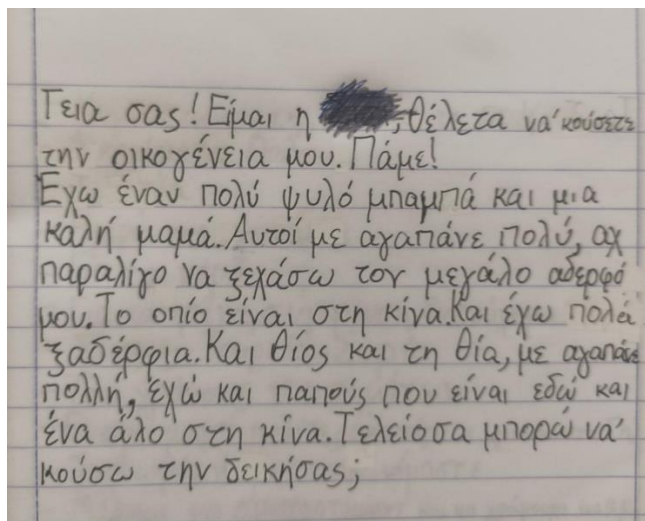 Γεια σας! Είμαι η , θέλετα να'κούσετε
την οικογένεια μου. Πάμε!
Έχω έναν πολύ ψυλό μπαμπά και μια
καλή μαμά. Αυτοί με αγαπάνε πολύ, αχ
παραλίγο να ξεχάσω τον μεγάλο αδερφό
μου. Το οπίο είναι στη κίνα. Και έχω πολά
ξαδέρφια. Και θίος και τη θία, με αγαπάνε
πολλή, έχώ και παπούς που είναι εδώ και
ένα άλο στη κίνα. Τελείοσα μπορώ να'
κούσω την δεικήσας;